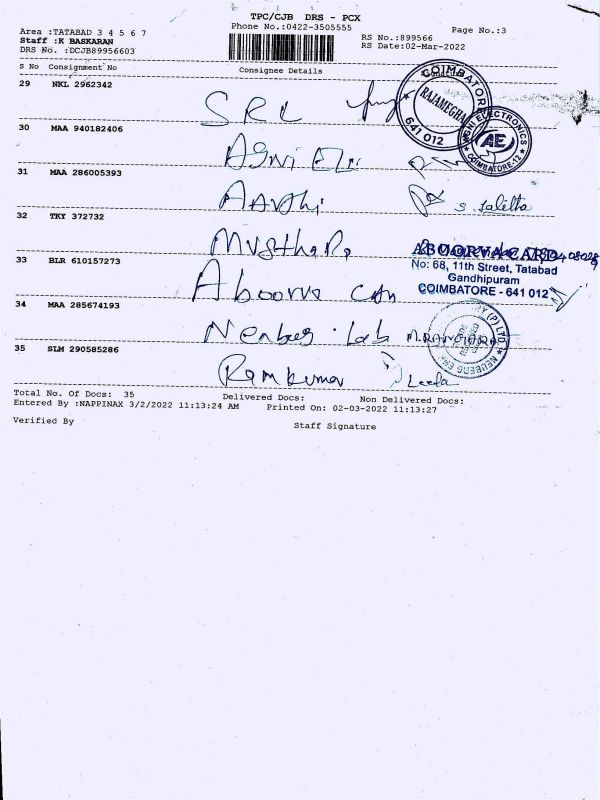 TPC/CJB DRS - PCX
Area :TATABAD 3 4 5 6 7
Phone No.:0422-3505555
Page No.:3
Staff :K BASKARAN
RS No.:899566
DRS No. :DCJB89956603
RS Date:02-Mar-2022
S No Consignment No
Consignee Details
29 NKL 2962342
SRL
COIMBATORE
RAJAMEGHA
641 012
30 MAA 940182406
ASWI ELE
ASNI ELECTRONICS
AE
COIMBATORE-12
31 MAA 286005393
AARTHI
S. Lalitha
32 TKY 372732
Musthafa
33 BLR 610157273
Aboorva CAR
ABOORVA CARD
No: 68, 11th Street, Tatabad
Gandhipuram
COIMBATORE - 641 012
34 MAA 285674193
Neuberg Lab
35 SLM 290585286
Ramkumar
Leela
Total No. Of Docs: 35
Delivered Docs:
Non Delivered Docs:
Entered By :NAPPINAX 3/2/2022 11:13:24 AM
Printed On: 02-03-2022 11:13:27
Verified By
Staff Signature